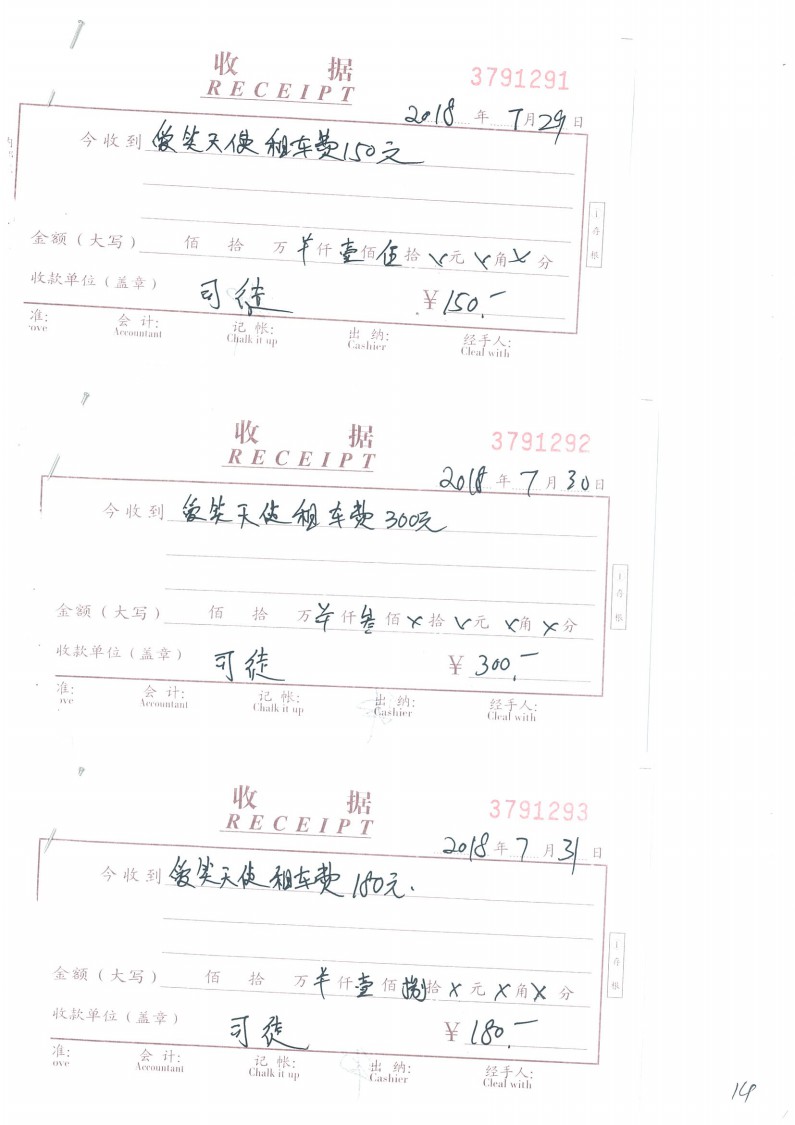 收 据 3791291
RECEIPT
2018 年 7月29日
今收到 爱笑天使租车费150元
1
存
根
金额(大写) 佰 拾 万 ¥ 仟 壹 佰 伍 拾 x 元 x 角 x 分
收款单位(盖章) 司徒 ¥ 150.-
准: 会 计: 记 帐: 出 纳: 经手人:
ove Accountant Chalk it up Cashier Cleal with
收 据 3791292
RECEIPT
2018 年 7 月 30 日
今收到 爱笑天使租车费 300元
1
存
根
金额(大写) 佰 拾 万 ¥ 仟 叁 佰 x 拾 x 元 x 角 x 分
收款单位(盖章) 司徒 ¥ 300.-
准: 会 计: 记 帐: 出 纳: 经手人:
ove Accountant Chalk it up Cashier Cleal with
收 据 3791293
RECEIPT
2018 年 7 月 31 日
今收到 爱笑天使租车费 180元.
1
存
根
金额(大写) 佰 拾 万 ¥ 仟 壹 佰 捌 拾 x 元 x 角 x 分
收款单位(盖章) 司徒 ¥ 180.-
准: 会 计: 记 帐: 出 纳: 经手人:
ove Accountant Chalk it up Cashier Cleal with
14